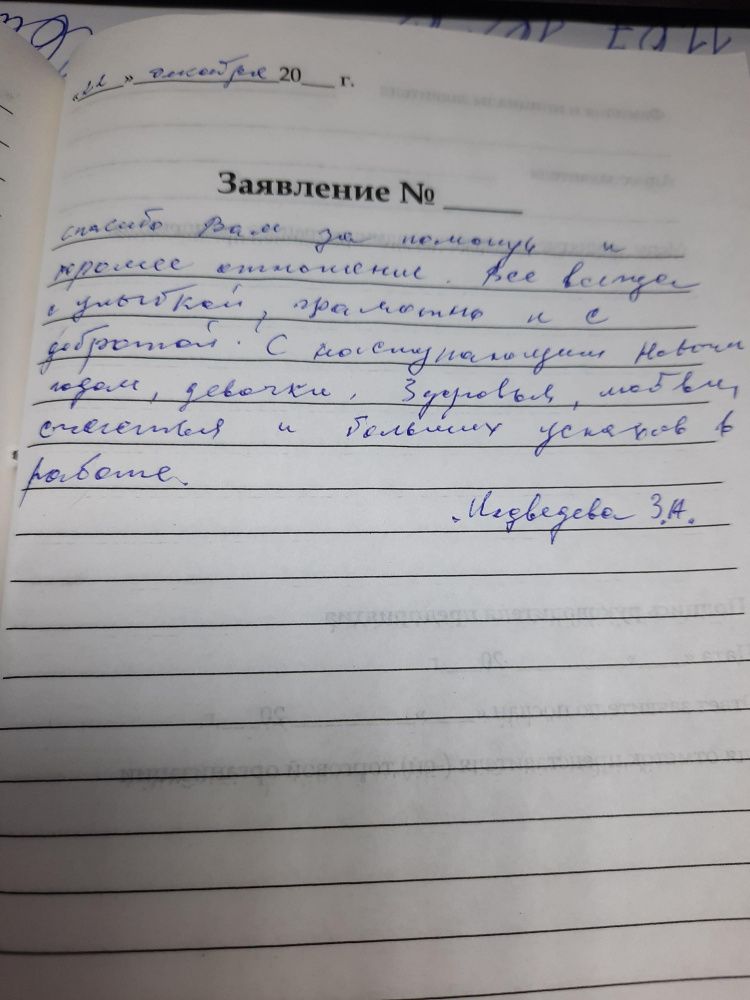 «22» декабря 20___ г.
Заявление № ______
спасибо Вам за помощь и
хорошее отношение. Все всегда
с улыбкой, грамотно и с
добротой. С наступающим Новым
годом, девочки. Здоровья, любви,
счастья и больших успехов в
работе.
Медведева З.А.